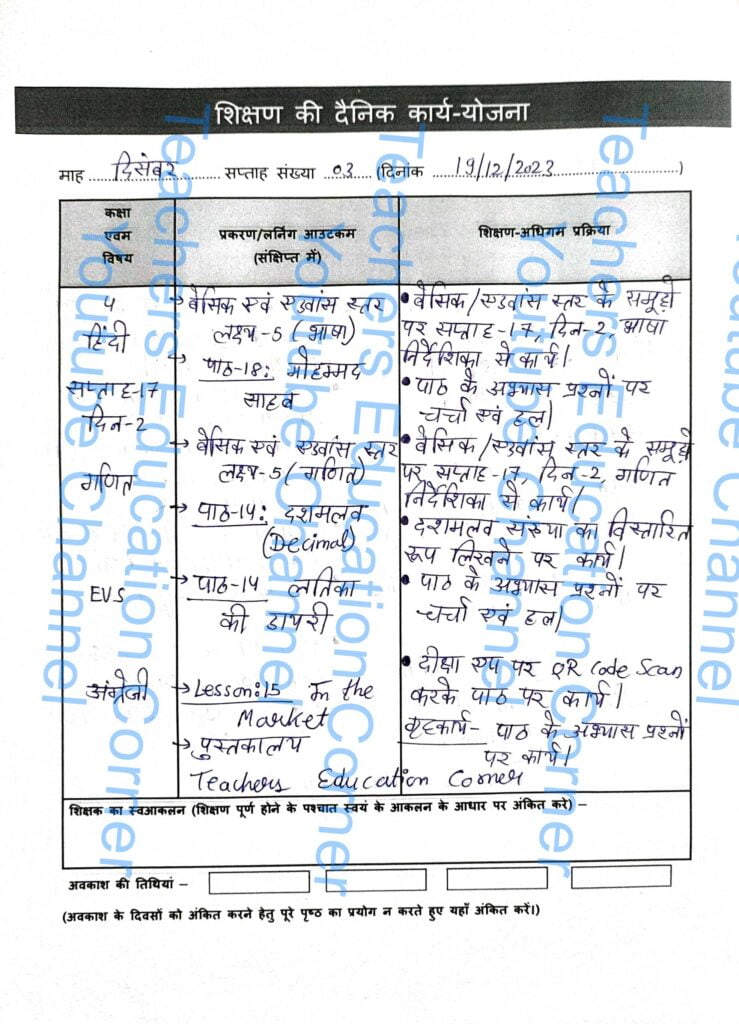 शिक्षण की दैनिक कार्य-योजना
माह ....दिसंबर.... सप्ताह संख्या .03... (दिनांक ....19/12/2023....)
कक्षा
एवम
विषय
प्रकरण/लर्निंग आउटकम
(संक्षिप्त में)
शिक्षण-अधिगम प्रक्रिया
5
हिंदी
सप्ताह-17
दिन-2
→ बेसिक एवं एडवांस स्तर
लक्ष्य-5 (भाषा)
→ पाठ-18: मोहम्मद
साहब
• बेसिक/एडवांस स्तर के समूहों
पर सप्ताह-17, दिन-2, भाषा
निर्देशिका से कार्य।
• पाठ के अभ्यास प्रश्नों पर
चर्चा एवं हल।
गणित
→ बेसिक एवं एडवांस स्तर
लक्ष्य-5 (गणित)
→ पाठ-14: दशमलव
(Decimal)
• बेसिक/एडवांस स्तर के समूहों
पर सप्ताह-17, दिन-2, गणित
निर्देशिका से कार्य।
• दशमलव संख्या का विस्तारित
रूप लिखने पर कार्य।
EVS
→ पाठ-14 लतिका
की डायरी
• पाठ के अभ्यास प्रश्नों पर
चर्चा एवं हल।
अंग्रेजी
→ Lesson:15 In the
Market
→ पुस्तकालय
• दीक्षा एप पर QR Code Scan
करके पाठ पर कार्य।
गृहकार्य- पाठ के अभ्यास प्रश्नों
पर कार्य।
Teachers Education Corner
शिक्षक का स्वआकलन (शिक्षण पूर्ण होने के पश्चात स्वयं के आकलन के आधार पर अंकित करे) –
अवकाश की तिथियां –
(अवकाश के दिवसों को अंकित करने हेतु पूरे पृष्ठ का प्रयोग न करते हुए यहाँ अंकित करें।)
Teachers Education Corner
Youtube Channel
Teachers Education Corner
Youtube Channel
Teachers Education Corner
Youtube Channel